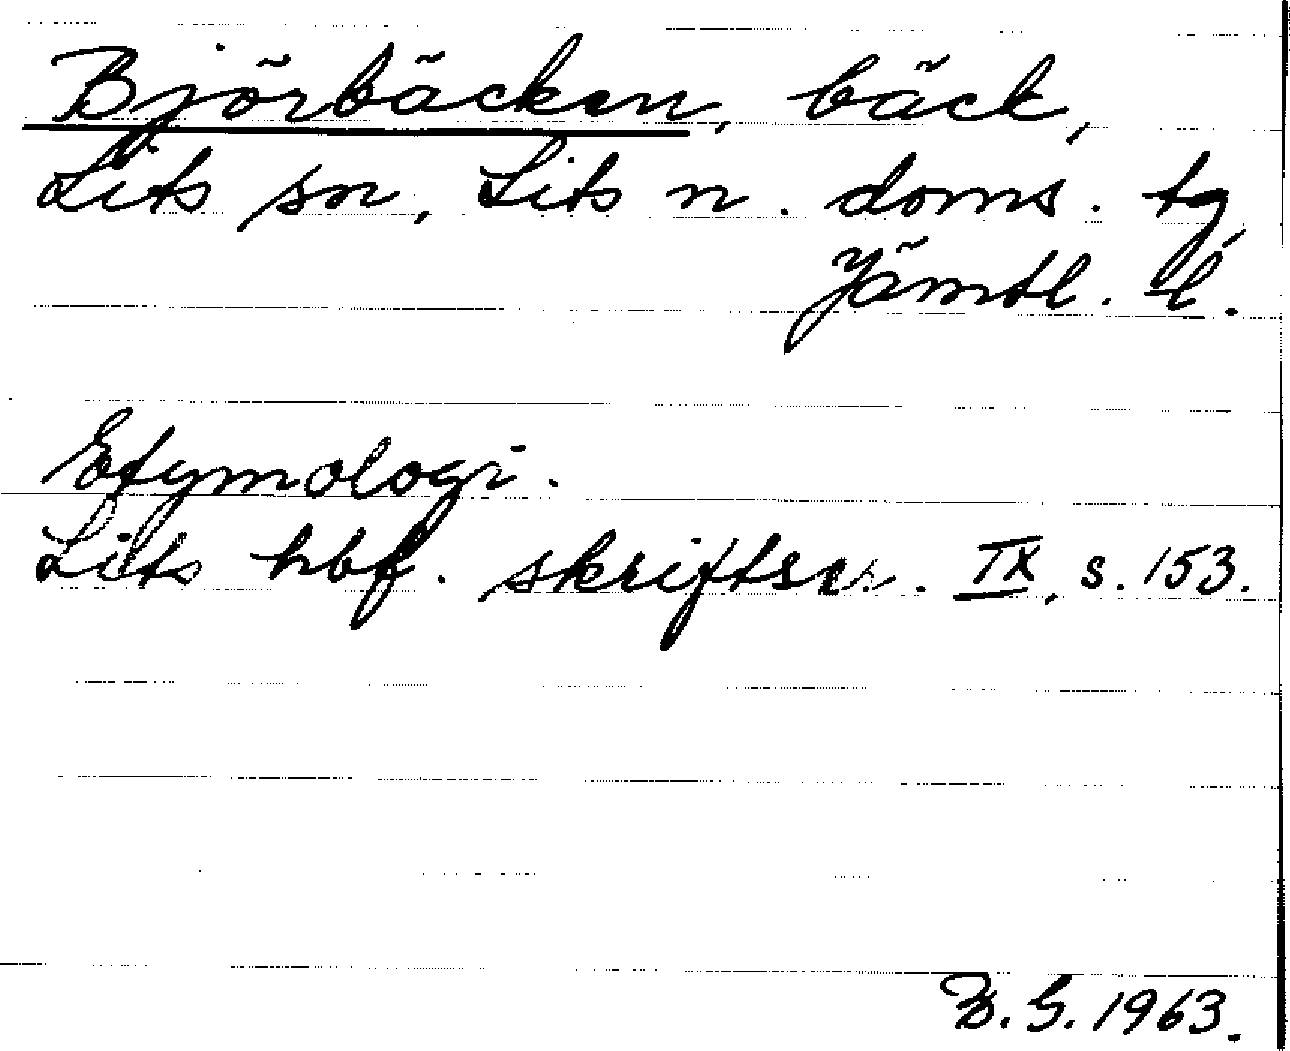 Björbäcken, bäck,
Lits sn, Lits n. doms. tg,
Jämtl. l.
Etymologi.
Lits hbf. skriftser. IX, s. 153.
G. 1963.